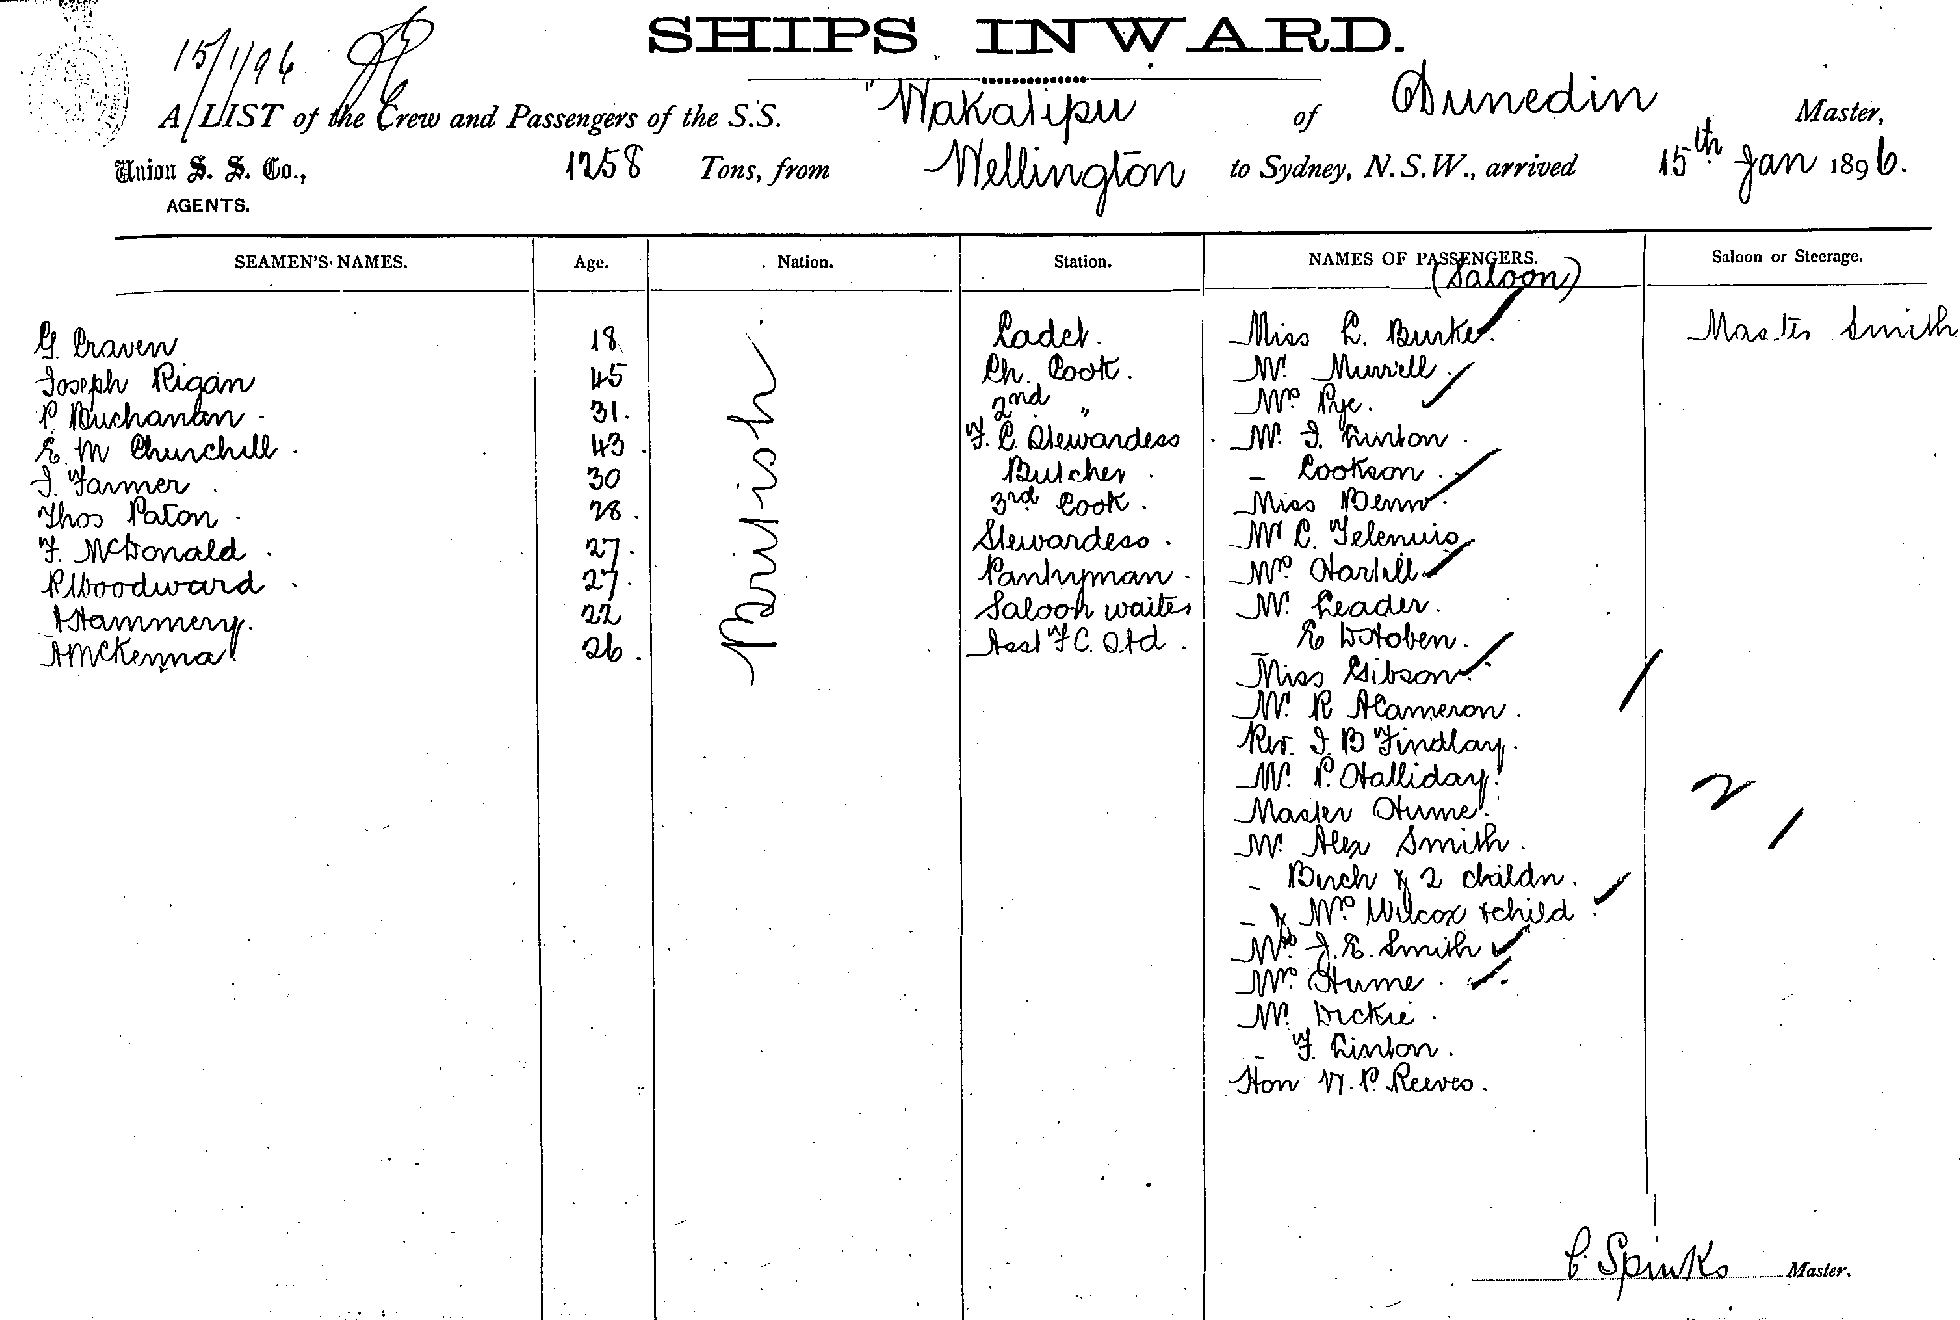 SHIPS INWARD.
15/1/96
A LIST of the Crew and Passengers of the S.S. "Wakatipu of Dunedin Master,
Union S. S. Co., 1258 Tons, from Wellington to Sydney, N.S.W., arrived 15th Jan 1896.
AGENTS.
SEAMEN'S NAMES. Age. Nation. Station. NAMES OF PASSENGERS. Saloon or Steerage.
(Saloon)
G. Craven 18 Cadet. Miss L. Burke. Master Smith
Joseph Rigan 45 Ch. Cook. Mr. Murrell.
P. Buchanan 31. 2nd " Mrs Pye.
E. M Churchill 43. F. C. Stewardess Mr. J. Linton.
J. Farmer 30 Butcher. - Cookson.
Thos Paton 28. 3rd Cook. Miss Benn.
F. McDonald 27. Stewardess. Mr C.
R Woodward 27. Pantryman. Mrs
22 Saloon waiter Mr. Leader.
A McKenna 26. Asst F C. Std. - E
British
Miss Gibson.
Mr. R A Cameron.
Rev. J. B Findlay.
Mr. P. Halliday.
Master Hume.
Mr. Alex Smith.
- Birch & 2 childn.
- & Mrs Wilcox & child
Mrs. J. E. Smith
Mrs. Hume.
Mr. Dickie.
- F. Linton.
Hon W. P. Reeves.
2
C Spinks Master.